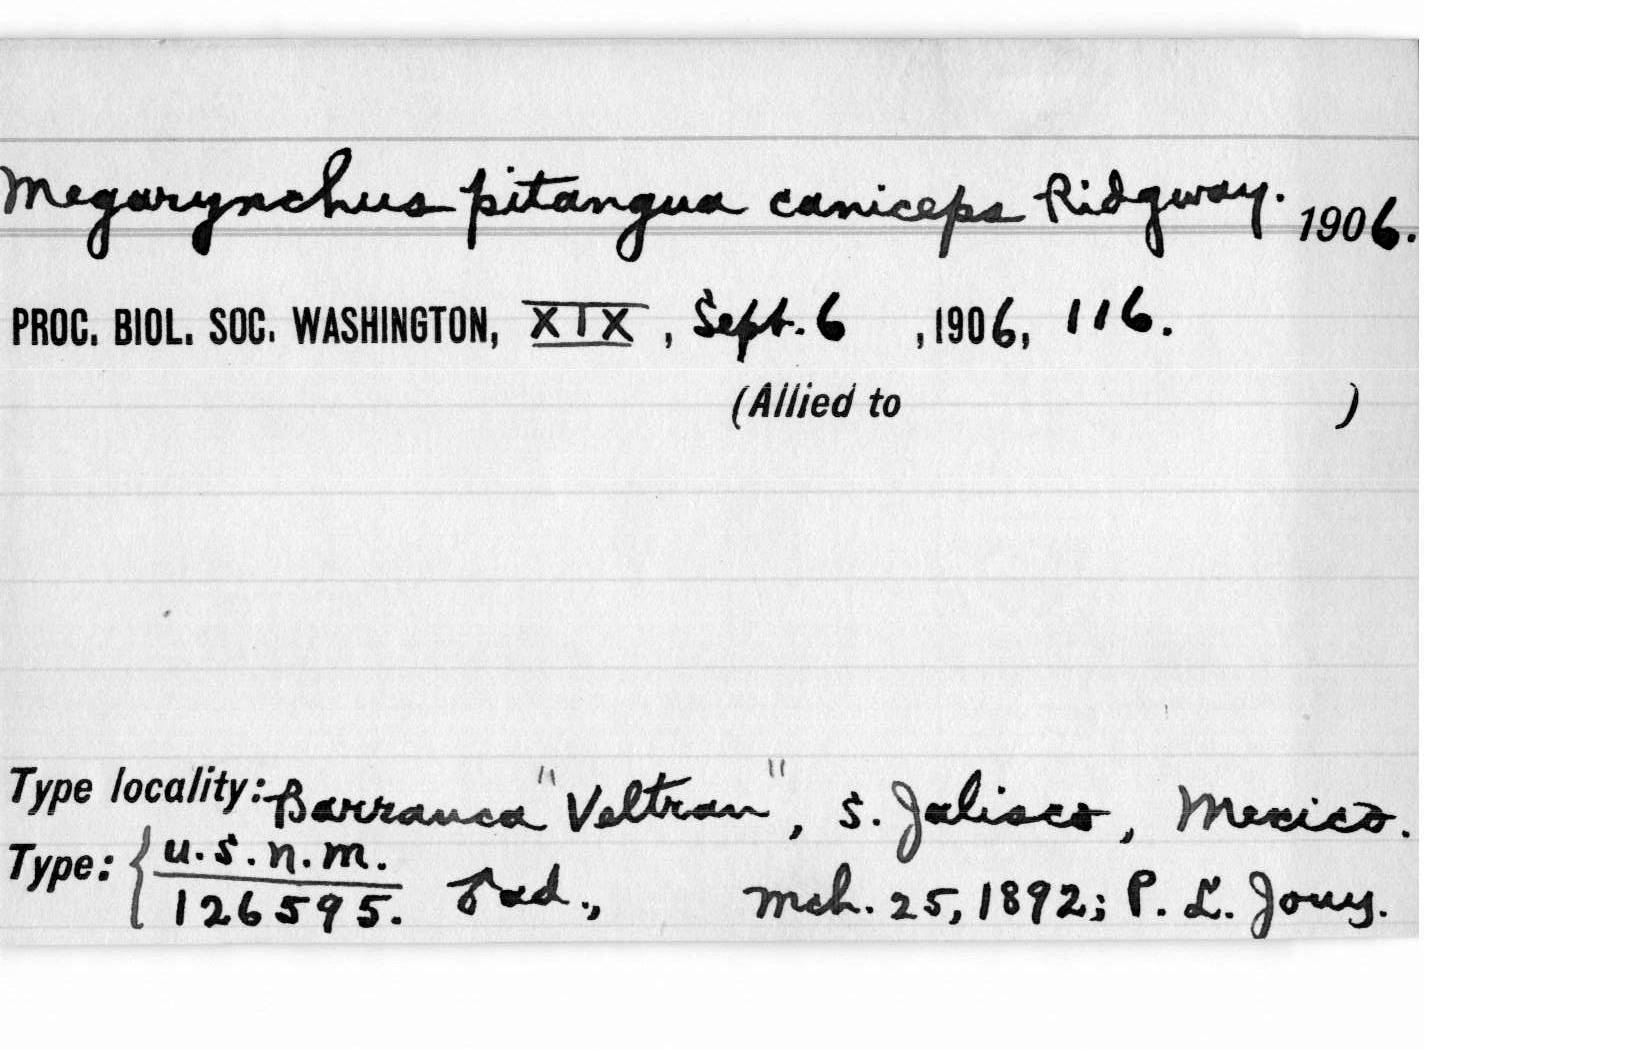 Megarynchus pitangua caniceps Ridgway. 1906.
PROC. BIOL. SOC. WASHINGTON, XIX, Sept. 6, 1906, 116.
(Allied to )
Type locality: Barranca "Veltran", S. Jalisco, Mexico.
Type: { U.S.N.M.
126595. ♂ ad., Mch. 25, 1892; P. L. Jouy.